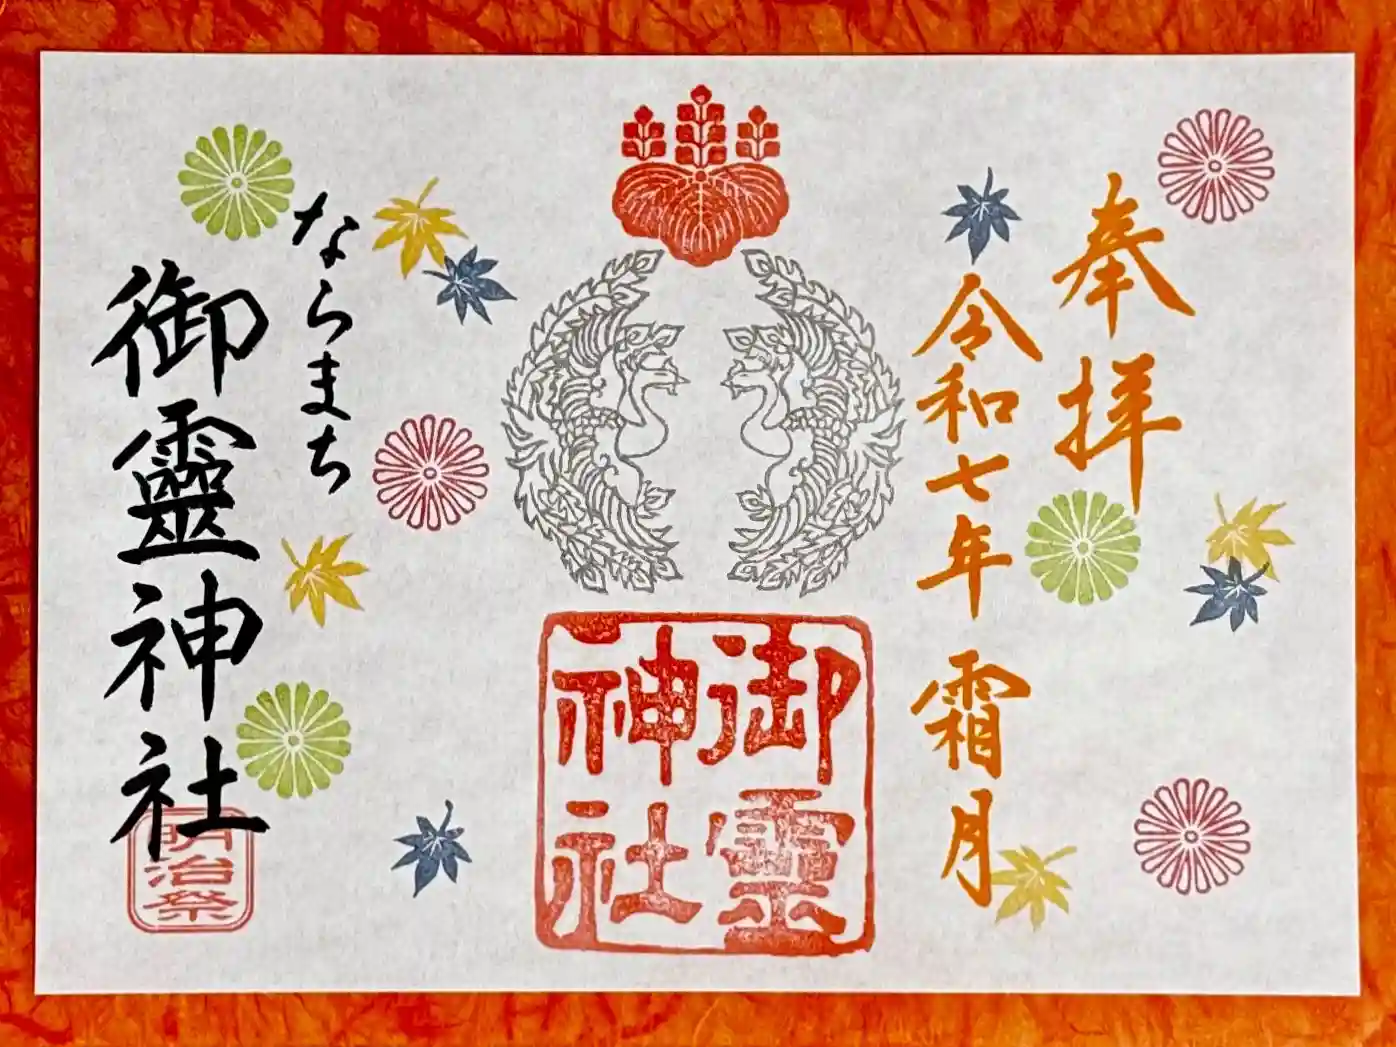 奉拝
令和七年 霜月
御靈神社
ならまち
御靈神社
明治祭